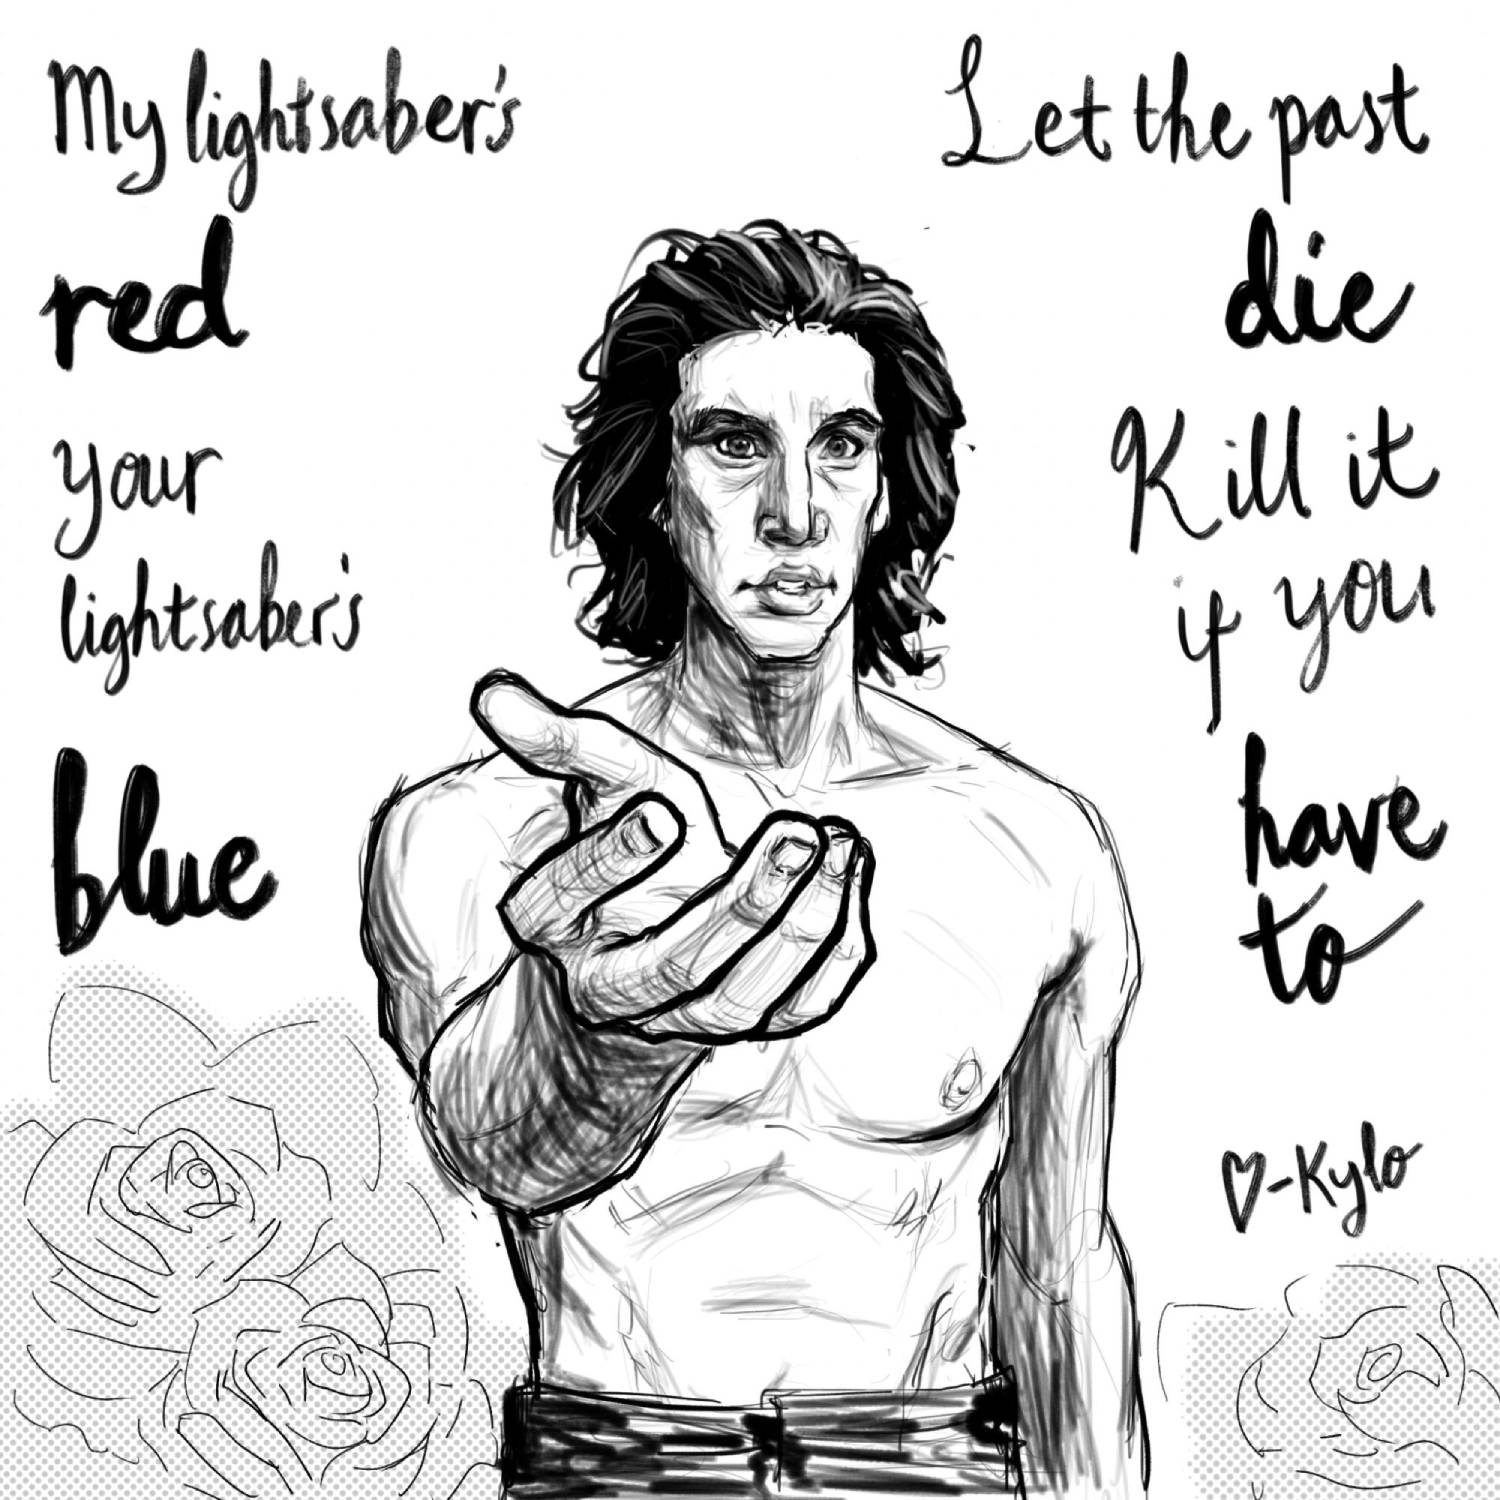 My lightsaber's
red
your
lightsaber's
blue
Let the past
die
Kill it
if you
have
to
♡-Kylo